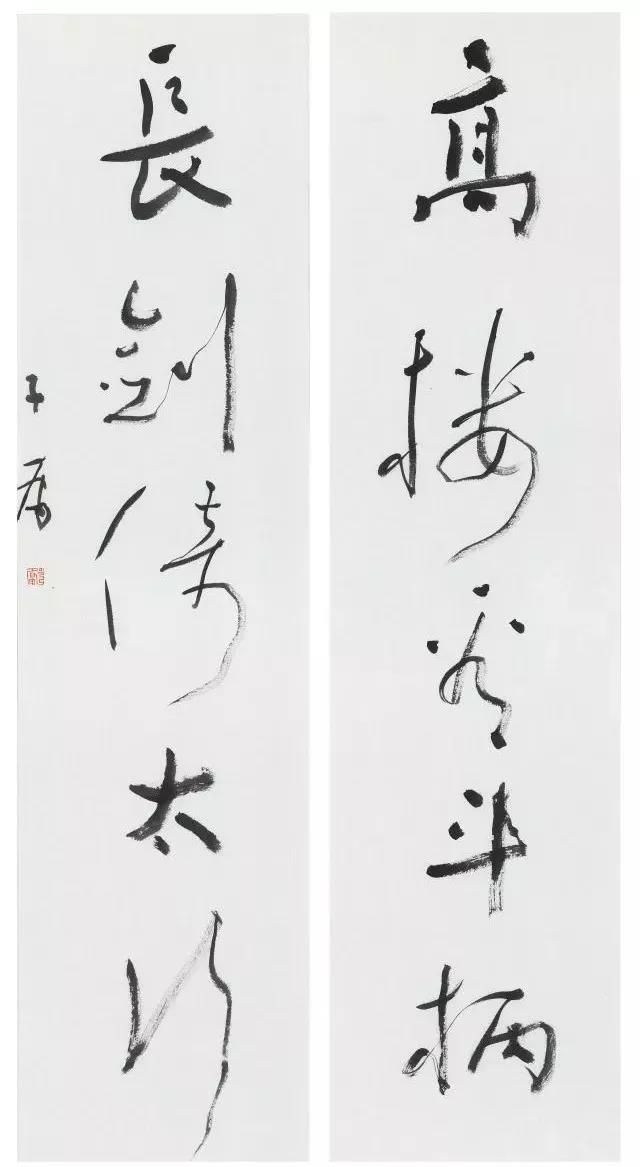 高楼斗柄
長劍倚太行